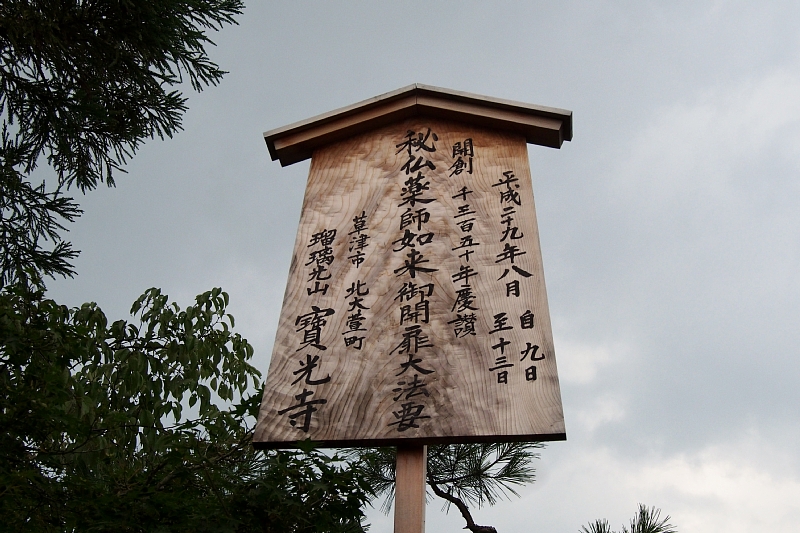 平成二十九年八月 自九日
至十三日
開創 千三百五十年慶讃
秘仏薬師如来御開扉大法要
草津市 北大萱町
瑠璃光山 寶光寺